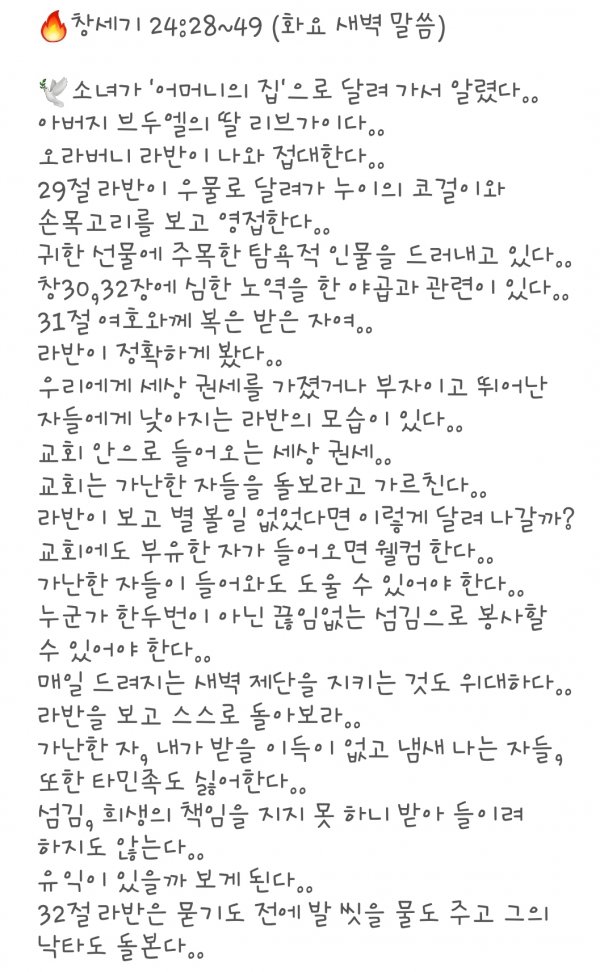 🔥창세기 24:28~49 (화요 새벽 말씀)
🕊소녀가 '어머니의 집'으로 달려 가서 알렸다..
아버지 브두엘의 딸 리브가이다..
오라버니 라반이 나와 접대한다..
29절 라반이 우물로 달려가 누이의 코걸이와
손목고리를 보고 영접한다..
귀한 선물에 주목한 탐욕적 인물을 드러내고 있다..
창30,32장에 심한 노역을 한 야곱과 관련이 있다..
31절 여호와께 복은 받은 자여..
라반이 정확하게 봤다..
우리에게 세상 권세를 가졌거나 부자이고 뛰어난
자들에게 낮아지는 라반의 모습이 있다..
교회 안으로 들어오는 세상 권세..
교회는 가난한 자들을 돌보라고 가르친다..
라반이 보고 별 볼일 없었다면 이렇게 달려 나갈까?
교회에도 부유한 자가 들어오면 웰컴 한다..
가난한 자들이 들어와도 도울 수 있어야 한다..
누군가 한두번이 아닌 끊임없는 섬김으로 봉사할
수 있어야 한다..
매일 드려지는 새벽 제단을 지키는 것도 위대하다..
라반을 보고 스스로 돌아보라..
가난한 자, 내가 받을 이득이 없고 냄새 나는 자들,
또한 타민족도 싫어한다..
섬김, 희생의 책임을 지지 못 하니 받아 들이려
하지도 않는다..
유익이 있을까 보게 된다..
32절 라반은 묻기도 전에 발 씻을 물도 주고 그의
낙타도 돌본다..